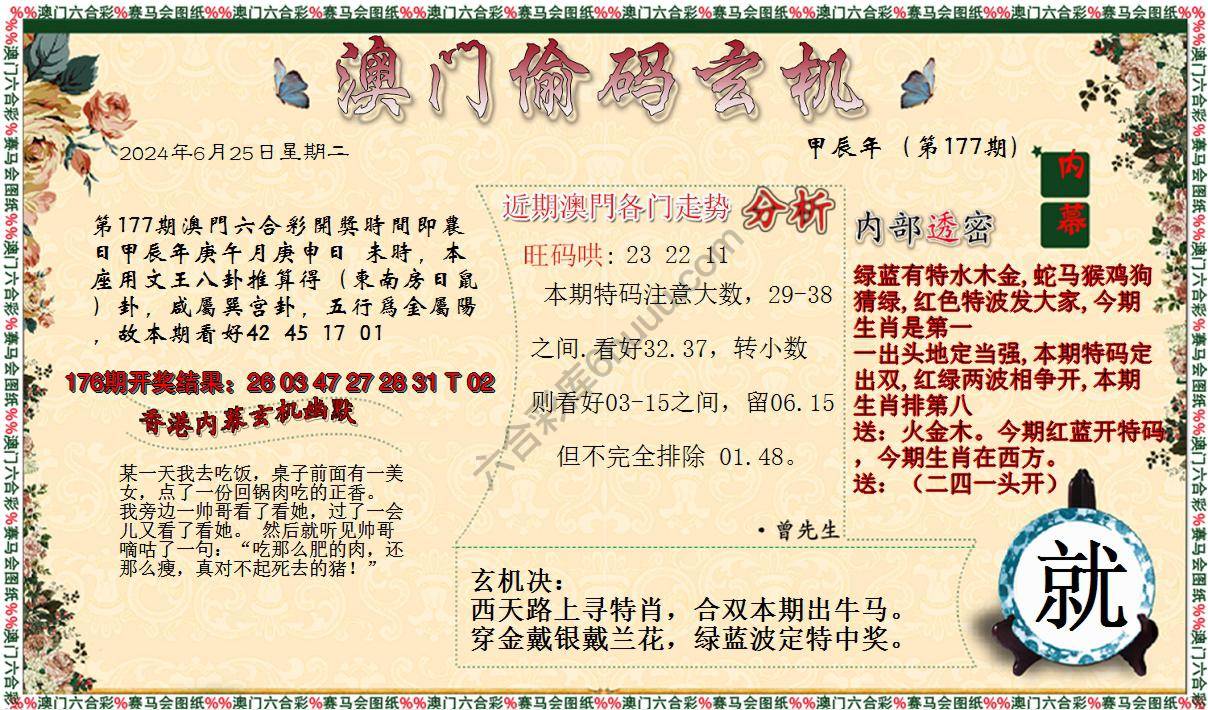 %%澳门六合彩%赛马会图纸%%澳门六合彩%赛马会图纸%%澳门六合彩%赛马会图纸%%澳门六合彩%赛马会图纸%%澳门六合彩%赛马会图纸%%澳门六合彩%赛马会图纸%%
澳门偷码玄机
2024年6月25日星期二
甲辰年（第177期）
内
幕
第177期澳門六合彩開獎時間即農
日甲辰年庚午月庚申日 未時，本
座用文王八卦推算得（東南房日鼠
）卦，咸屬巽宫卦，五行爲金屬陽
，故本期看好42 45 17 01
176期开奖结果：26 03 47 27 28 31 T 02
香港内幕玄机幽默
某一天我去吃饭，桌子前面有一美
女，点了一份回锅肉吃的正香。
我旁边一帅哥看了看她，过了一会
儿又看了看她。 然后就听见帅哥
嘀咕了一句：“吃那么肥的肉，还
那么瘦，真对不起死去的猪！”
近期澳門各门走势 分析
旺码哄: 23 22 11
本期特码注意大数，29-38
之间.看好32.37，转小数
则看好03-15之间，留06.15
但不完全排除 01.48。
·曾先生
内部透密
绿蓝有特水木金,蛇马猴鸡狗
猜绿,红色特波发大家,今期
生肖是第一
一出头地定当强,本期特码定
出双,红绿两波相争开,本期
生肖排第八
送：火金木。今期红蓝开特码
，今期生肖在西方。
送：（二四一头开）
玄机决：
西天路上寻特肖，合双本期出牛马。
穿金戴银戴兰花，绿蓝波定特中奖。
就